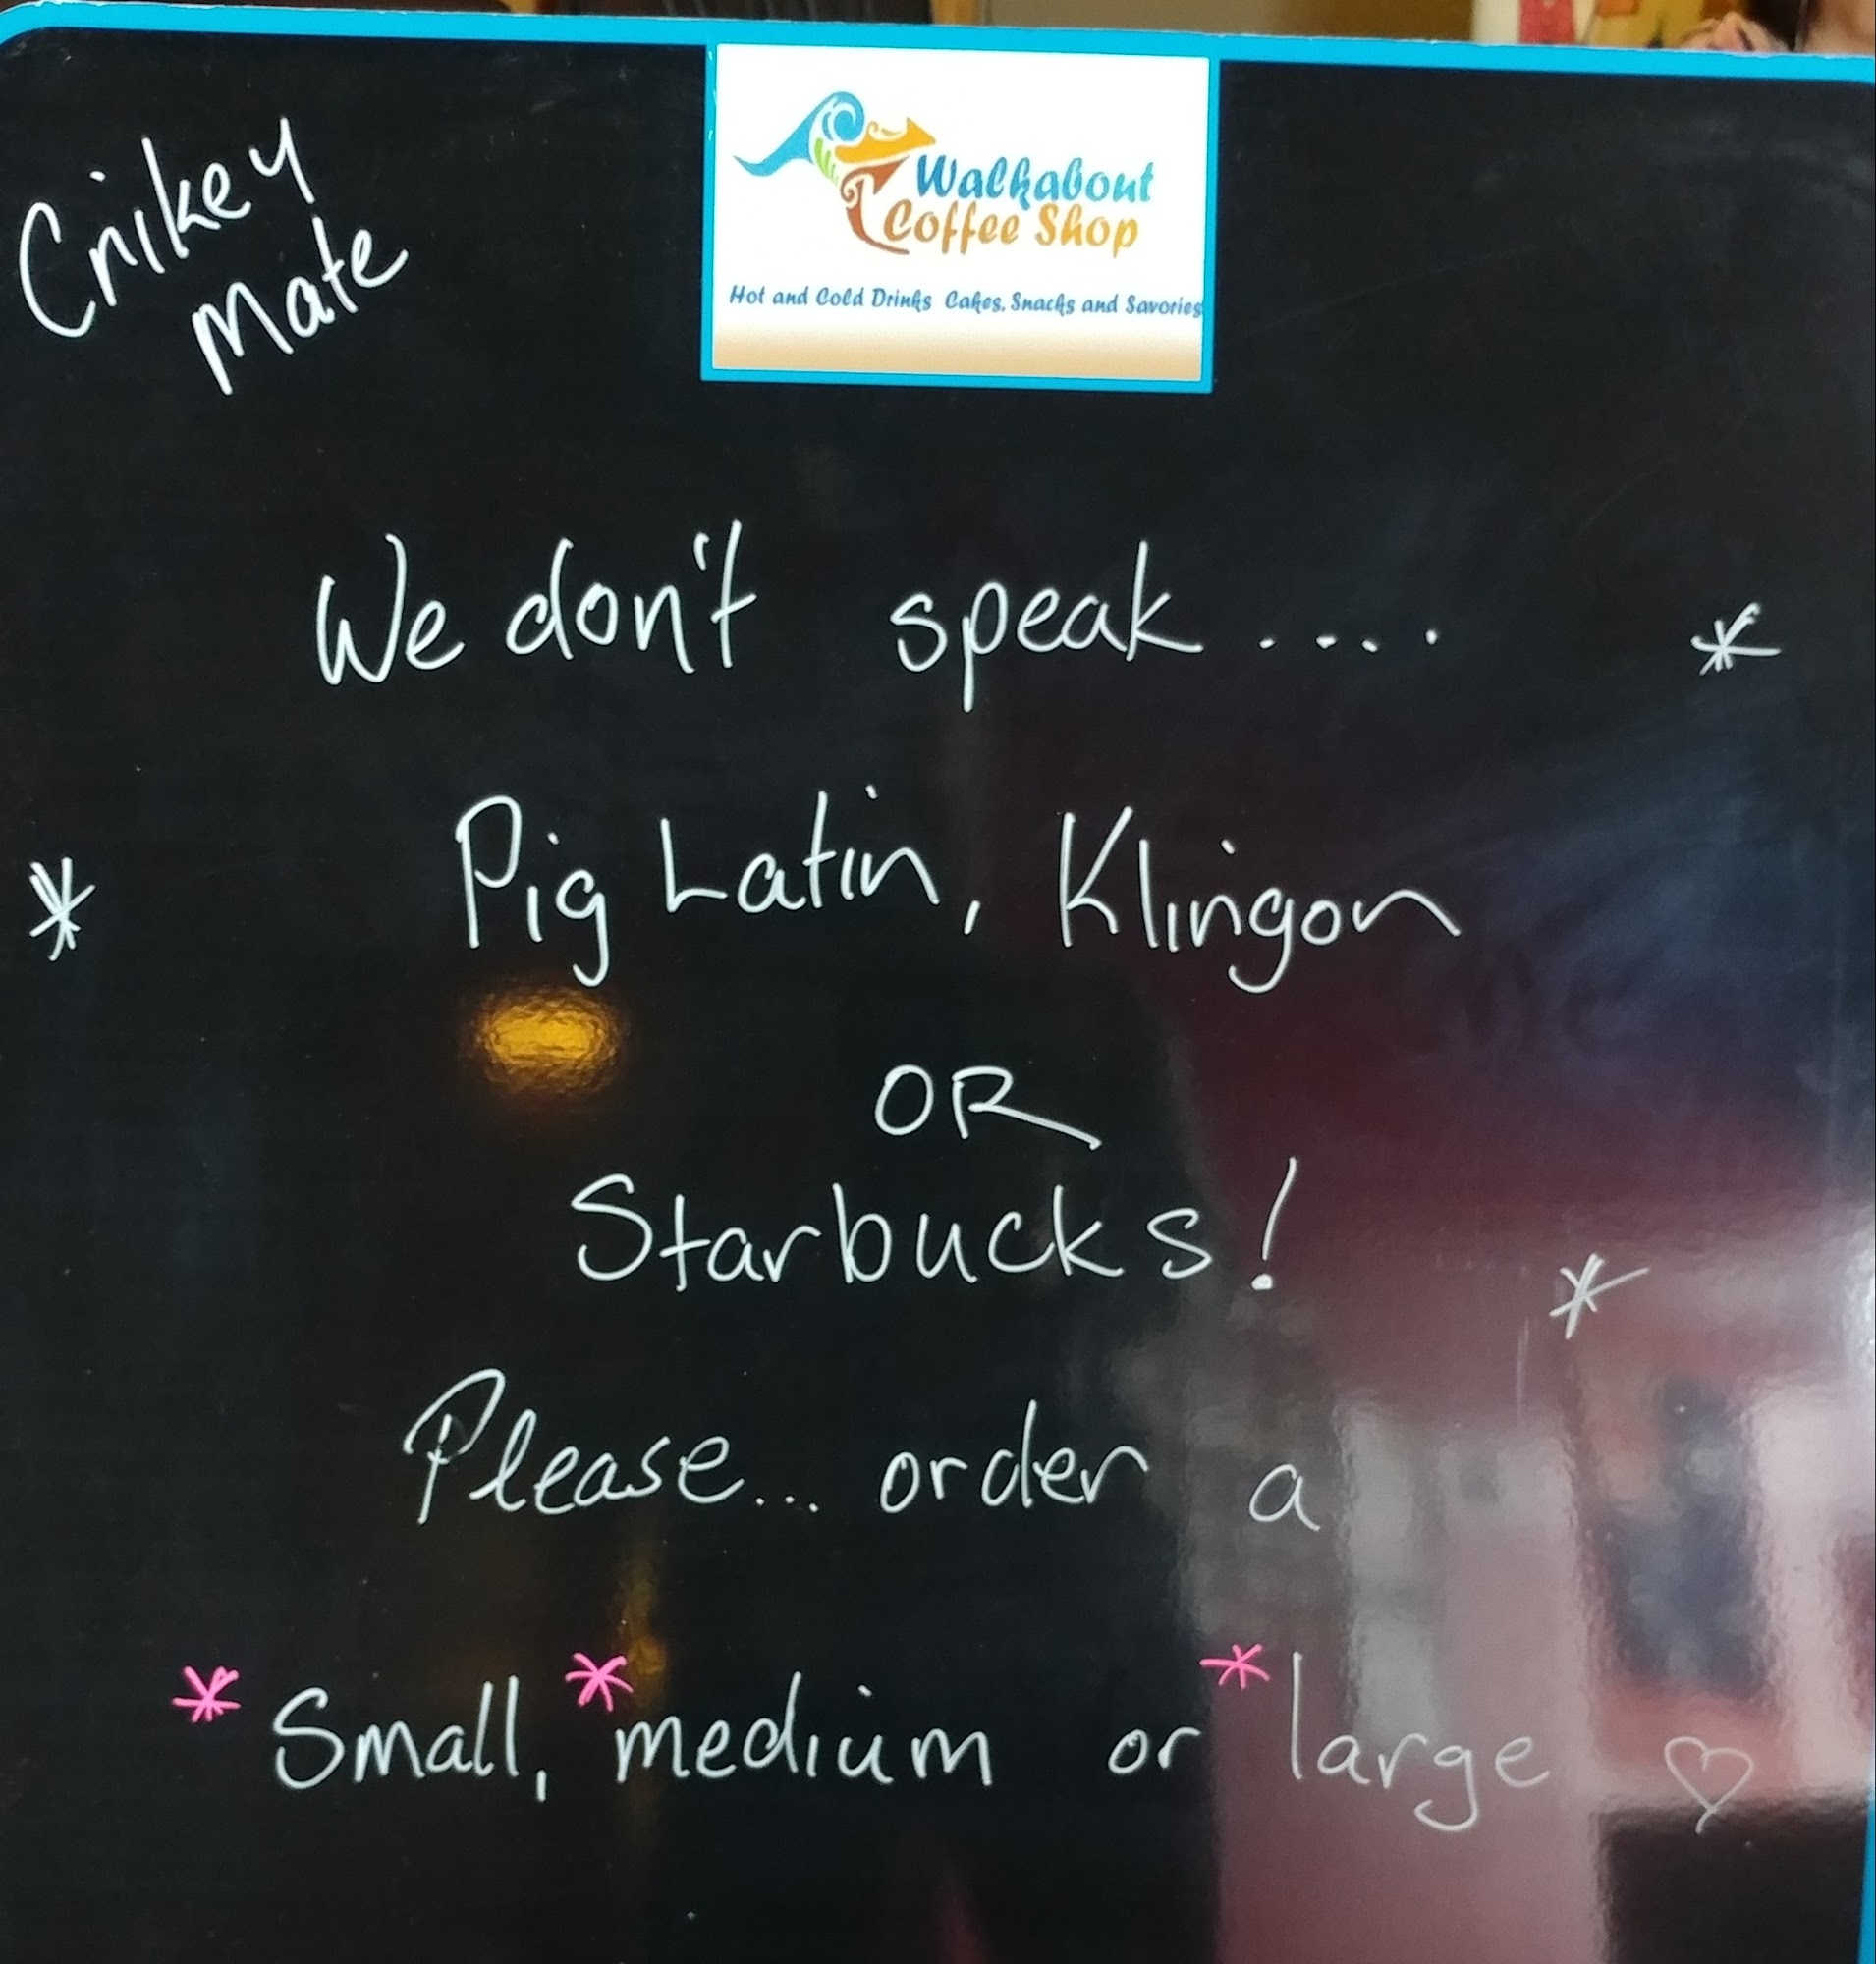 Crikey
Mate
Walkabout
Coffee Shop
Hot and Cold Drinks Cakes, Snacks and Savories
We don't speak....
Pig Latin, Klingon
OR
Starbucks!
Please... order a
*Small, *medium or *large ♡